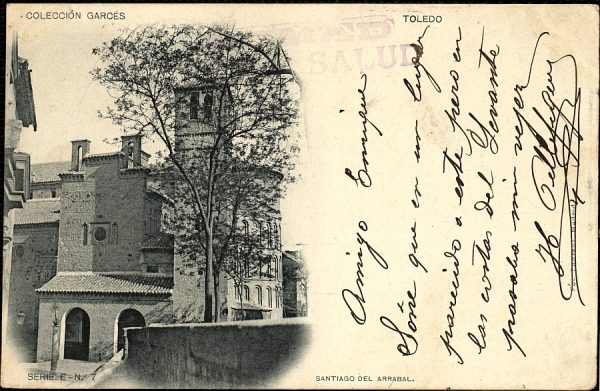 COLECCIÓN GARCÉS
TOLEDO
SALUD
Amigo Enrique
Soñé que en un lugar
parecido a este pero en
las costas del Levante
pasaba mi vejez
SERIE. E-N.º 7
SANTIAGO DEL ARRABAL.